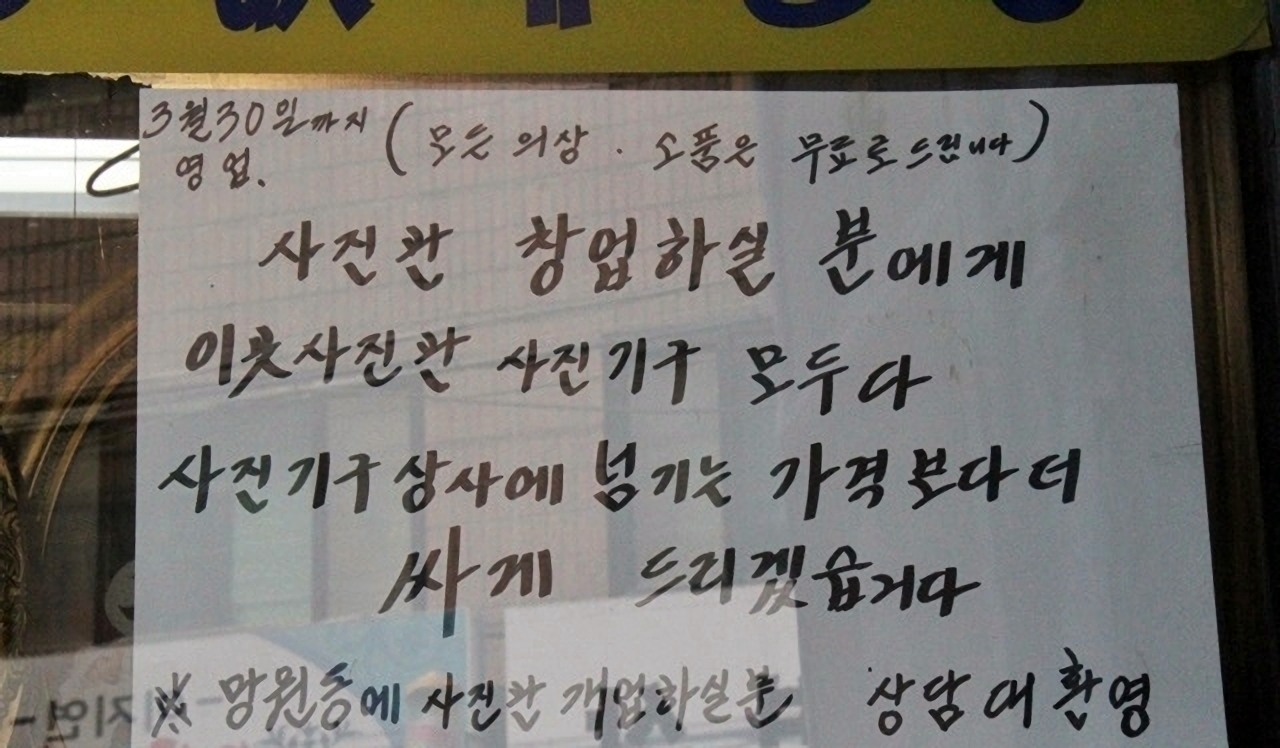 3월30일까지 (모든 의상 · 소품은 무료로 드립니다)
영업.
사진관 창업하실 분에게
이웃사진관 사진기구 모두다
사진기구상사에 넘기는 가격보다 더
싸게 드리겠습니다
※ 망원동에 사진관 개업하실분 상담 대환영